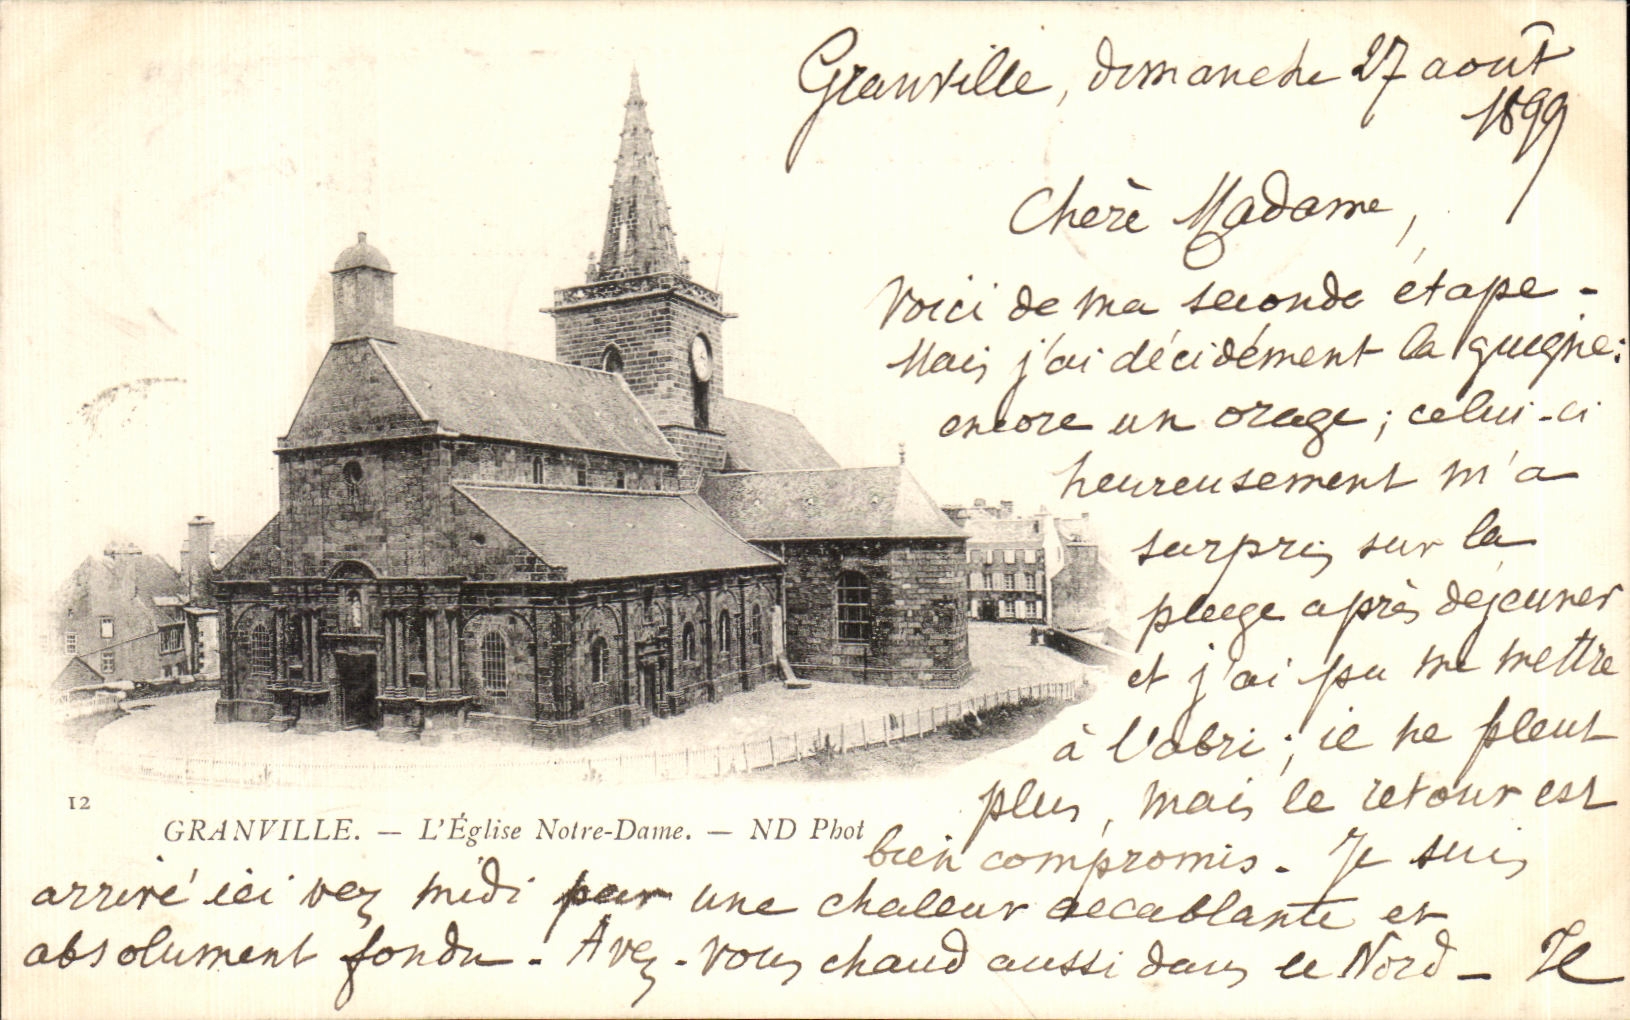 Granville, dimanche 27 août
1899
Chère Madame,
Voici de ma seconde étape -
Mais j'ai décidément la guigne:
encore un orage; celui-ci
heureusement m'a
surpris sur la
plage après déjeuner
et j'ai pu me mettre
à l'abri; il ne pleut
plus, mais le retour est
12
GRANVILLE. — L'Église Notre-Dame. — ND Phot
bien compromis. Je suis
arrivé ici vers midi par une chaleur accablante et
absolument fondu. Avez-vous chaud aussi dans le Nord - Je